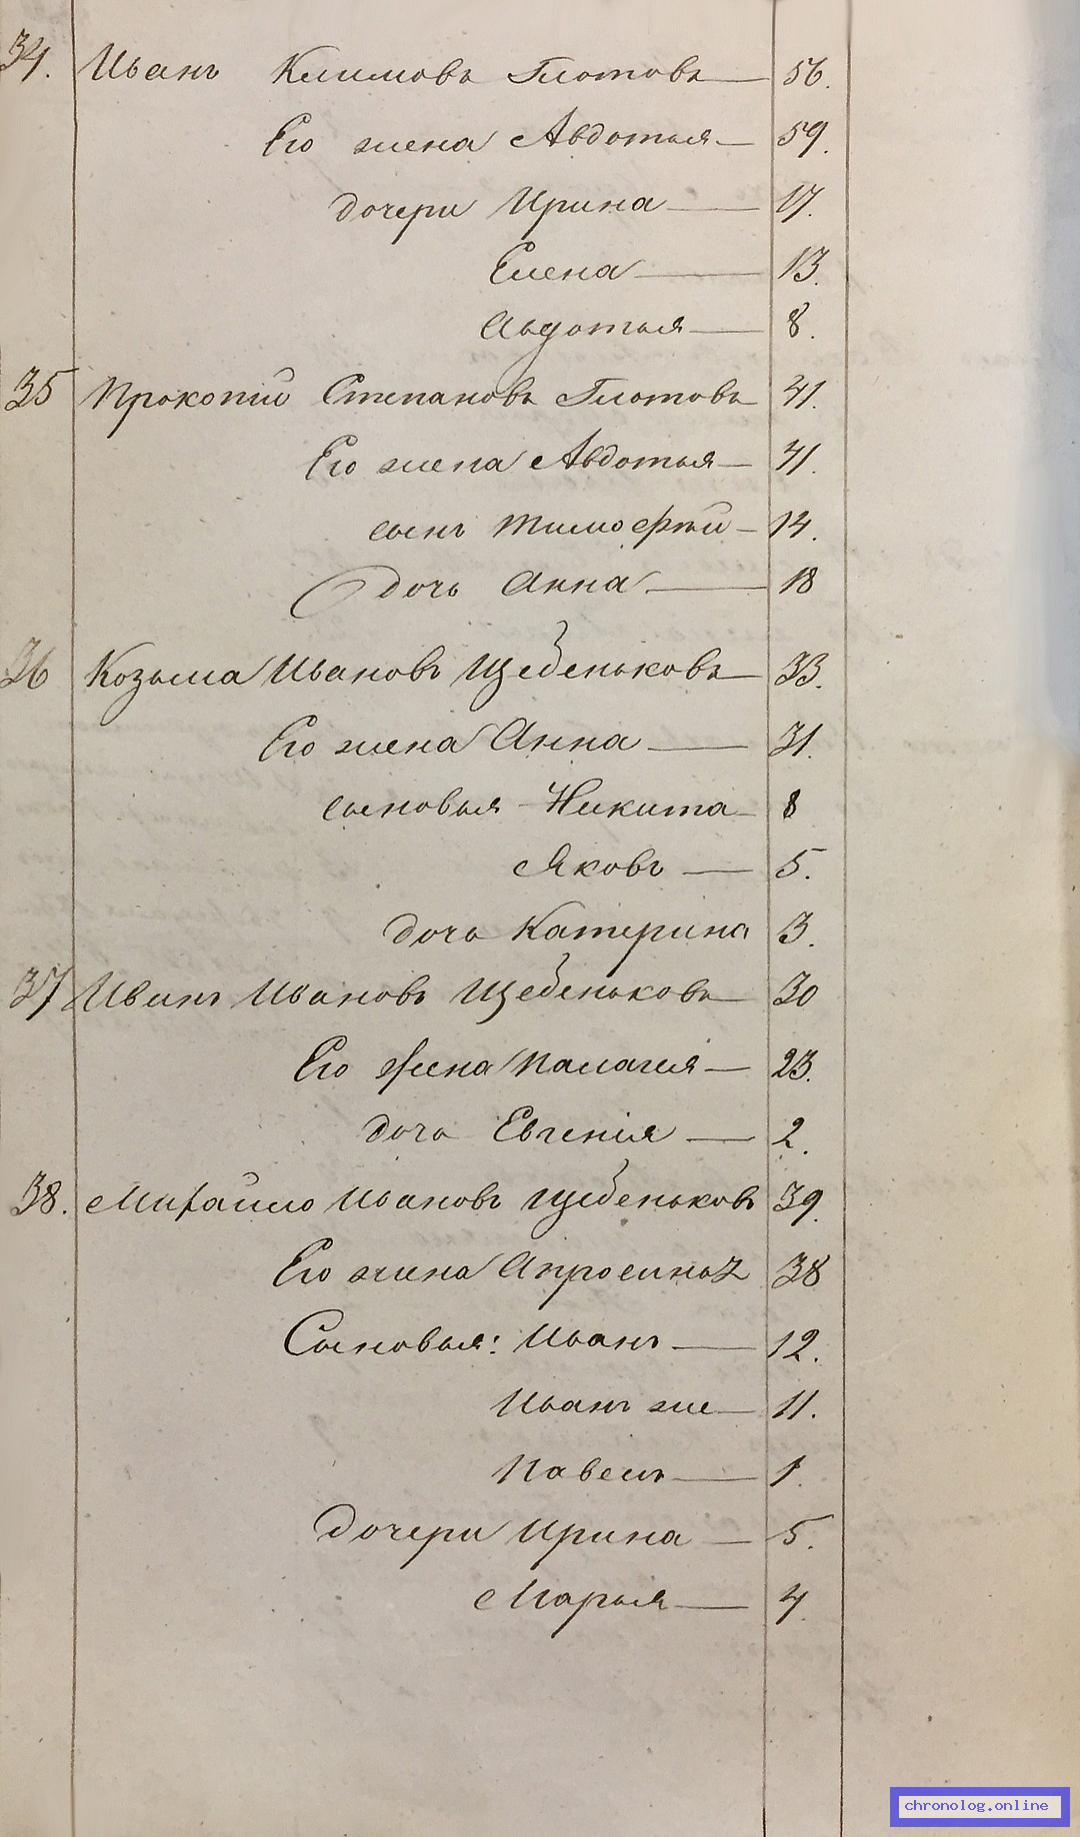 34. Иванъ Климовъ Глотовъ — 56.
Его жена Авдотья — 59.
дочери Ирина — 17.
Елена — 13.
Авдотья — 8.
35 Прокопій Степановъ Глотовъ 41.
Его жена Авдотья — 41.
сынъ Тимофѣй — 14.
дочь Анна — 18
36 Козьма Ивановъ Щебеньковъ — 33.
Его жена Анна — 31.
сыновья Никита — 8
Яковъ — 5.
дочь Катерина 3.
37 Иванъ Ивановъ Щебеньковъ — 30
Его жена Палагея — 23.
дочь Евгенія — 2.
38. Михайло Ивановъ Щебеньковъ 39.
Его жена Апросинья 38
Сыновья: Иванъ — 12.
Иванъ же — 11.
Павелъ — 1.
дочери Ирина — 5.
Марья — 4.
chronolog.online